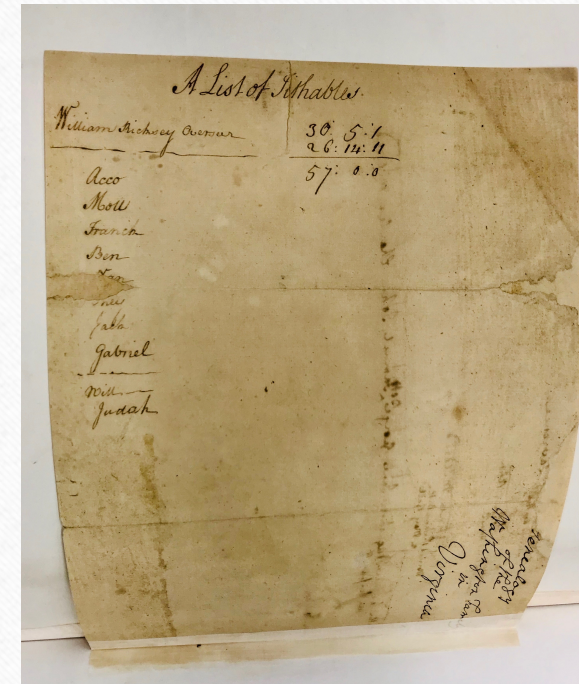 A List of Tithables.
William Richsey Overseer
30: 5: 1
26: 14: 11
57: 0: 0
Acco
Moll
Franck
Ben
Jack
Gabriel
Will
Judah
of the
in
Virginia